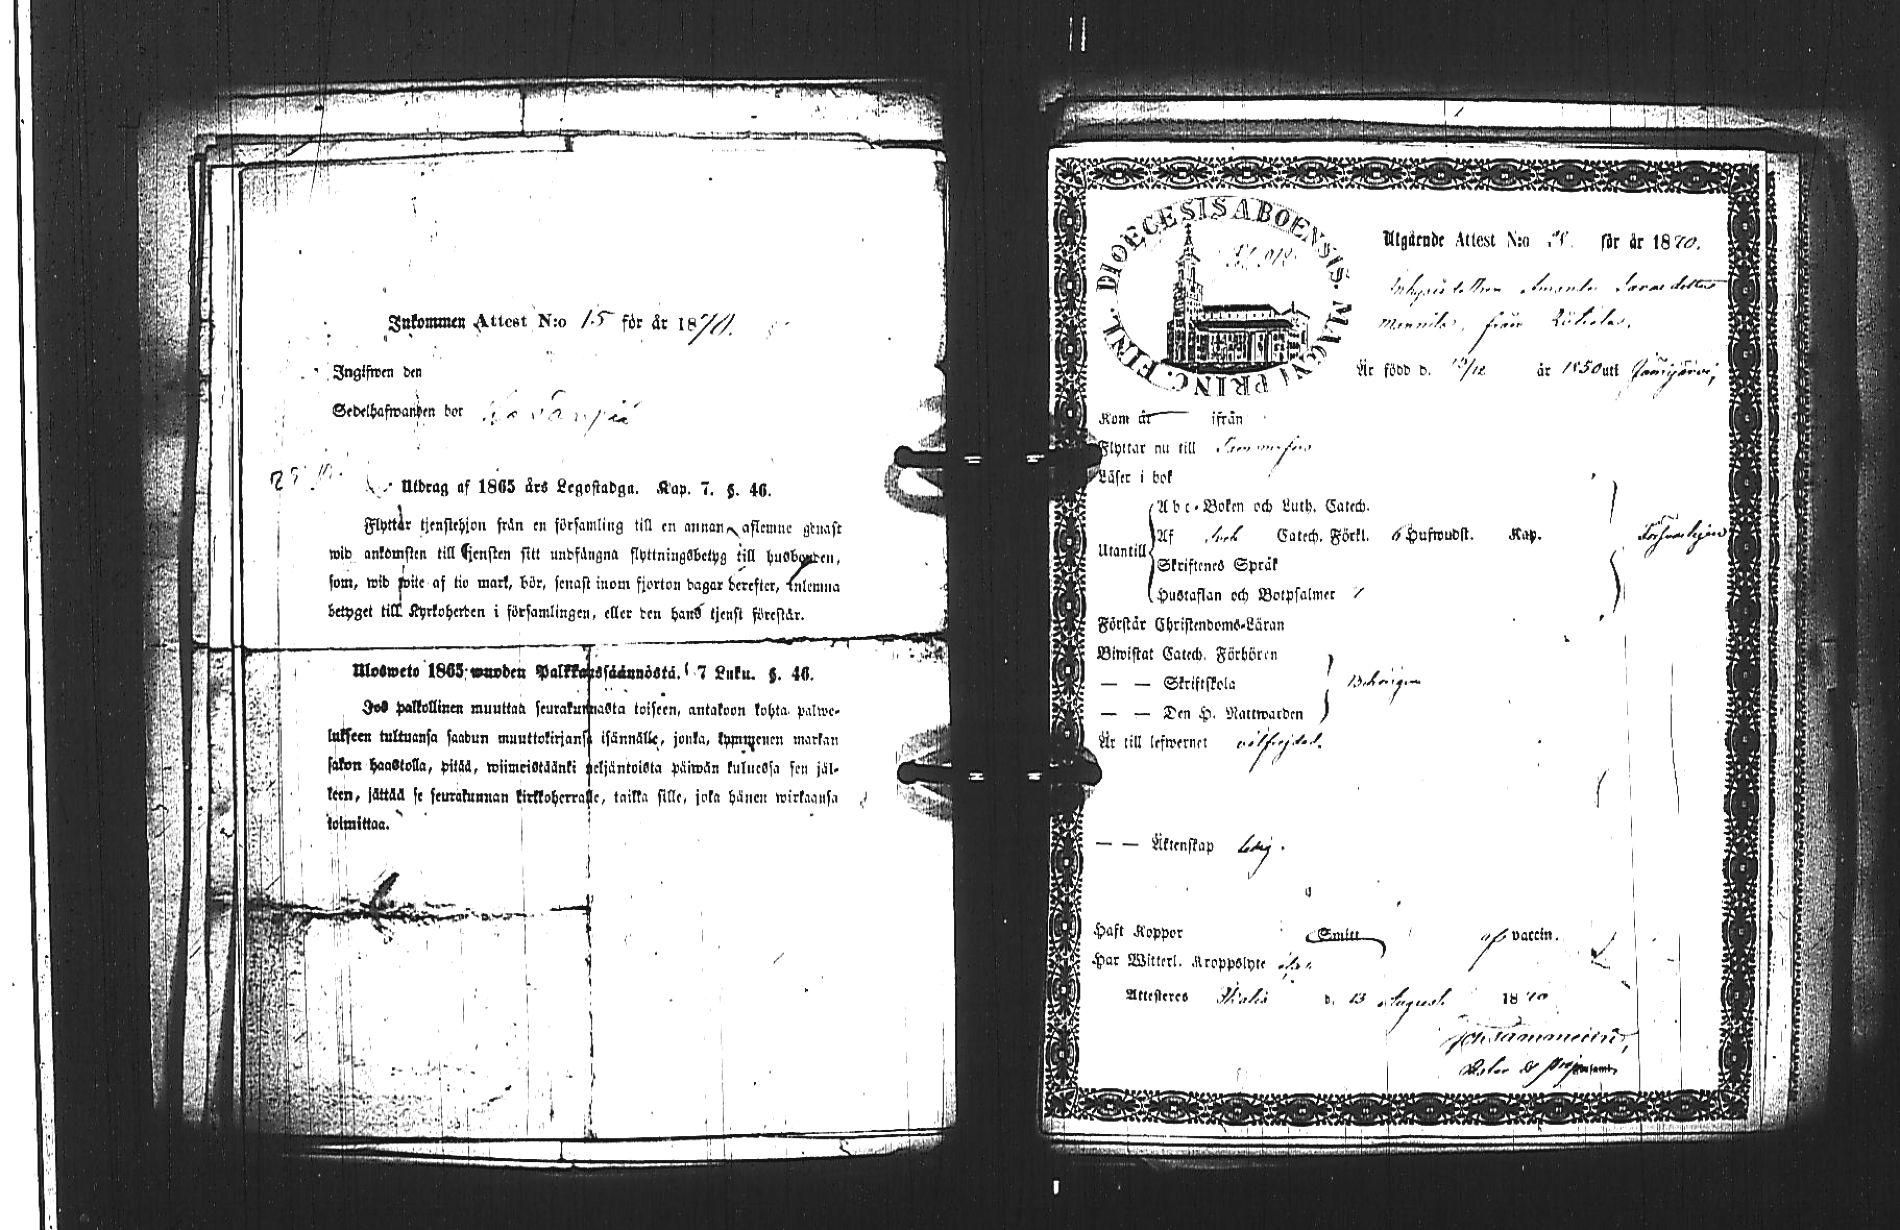 Inkommen Attest N:o 15 för år 1870.
Ingifwen den
Sedelhafwanden bor
Utdrag af 1865 års Legostadga. Kap. 7. §. 46.
Flyttar tjenstehjon från en församling till en annan, aflemne genast
wid ankomsten till tjensten sitt undfångna flyttningsbetyg till husbonden,
som, wid wite af tio mark, bör, senast inom fjorton dagar derefter, inlemna
betyget till Kyrkoherden i församlingen, eller den hans tjenst förestår.
Ulosweto 1865 wuoden Palkkaussäännöstä. 7 Luku. §. 46.
Jos palkollinen muuttaa seurakunnasta toiseen, antakoon kohta palwe-
lukseen tultuansa saadun muuttokirjansa isännälle, jonka, kymmenen markan
sakon haastolla, pitää, wiimeistäänki neljäntoista päiwän kuluessa sen jäl-
keen, jättää se seurakunnan kirkkoherralle, taikka sille, joka hänen wirkaansa
toimittaa.
DIOECESIS ABOENSIS. MAGNI PRINC. FINL.
Utgående Attest N:o för år 1870.
Amanda
från
Är född d. /12 år 1850 uti Jämijärvi,
Kom år ifrån
Flyttar nu till Tammerfors
Läser i bok
Utantill
Abc-Boken och Luth. Catech.
Af Catech. Förkl. 6 Hufwudst. Kap.
Skriftenes Språk
Hustaflan och Botpsalmer
Försvarligen
Förstår Christendoms-Läran
Biwistat Catech. Förhören
— — Skriftskola
— — Den H. Nattwarden
Behörigen
Är till lefwernet välfrejdad.
— — Äktenskap ledig.
Haft Koppor Smitt af vaccin.
Har Witterl. Kroppslyte
Attesteres Ikalis d. 13 Augusti 1870